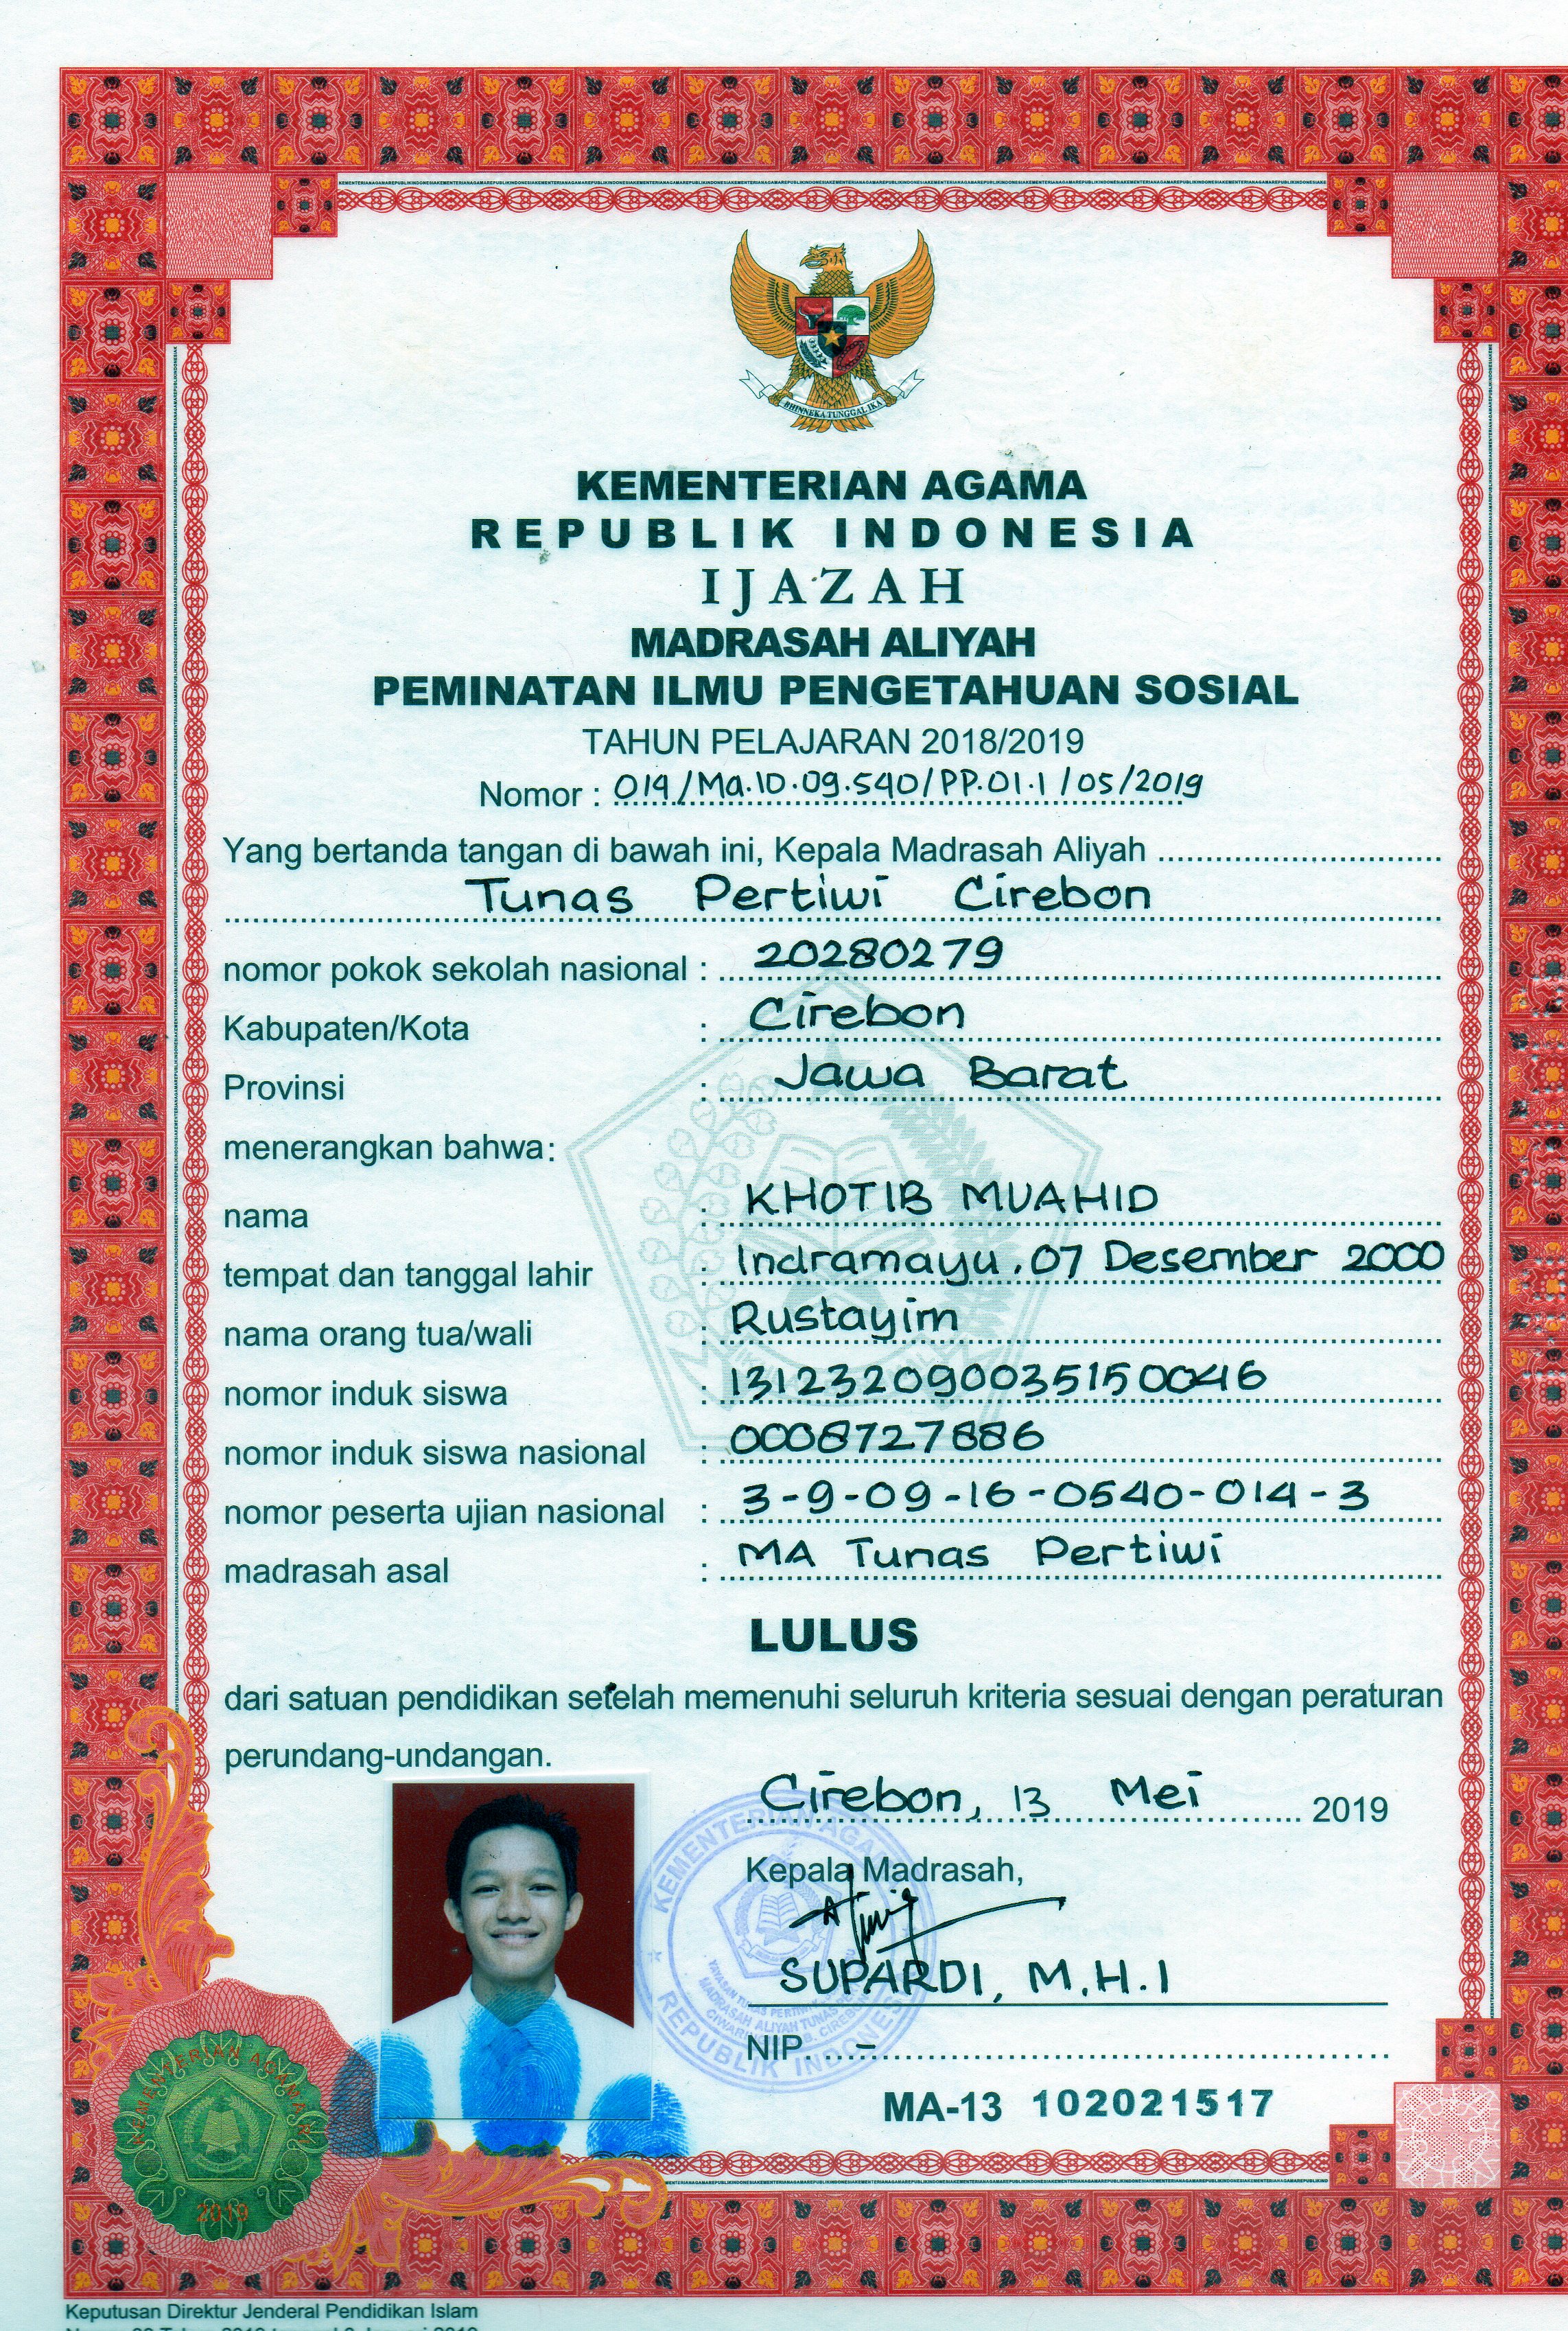 BHINNEKA TUNGGAL IKA
KEMENTERIAN AGAMA
REPUBLIK INDONESIA
IJAZAH
MADRASAH ALIYAH
PEMINATAN ILMU PENGETAHUAN SOSIAL
TAHUN PELAJARAN 2018/2019
Nomor : 014/Ma.10.09.540/PP.01.1/05/2019
Yang bertanda tangan di bawah ini, Kepala Madrasah Aliyah
Tunas Pertiwi Cirebon
nomor pokok sekolah nasional : 20280279
Kabupaten/Kota : Cirebon
Provinsi : Jawa Barat
menerangkan bahwa:
nama : KHOTIB MUAHID
tempat dan tanggal lahir : Indramayu, 07 Desember 2000
nama orang tua/wali : Rustayim
nomor induk siswa : 131232090035150046
nomor induk siswa nasional : 0008727886
nomor peserta ujian nasional : 3-9-09-16-0540-014-3
madrasah asal : MA Tunas Pertiwi
LULUS
dari satuan pendidikan setelah memenuhi seluruh kriteria sesuai dengan peraturan
perundang-undangan.
Cirebon, 13 Mei 2019
Kepala Madrasah,
SUPARDI, M.H.I
NIP. -
MA-13 102021517
KEMENTERIAN AGAMA
REPUBLIK INDONESIA
KEMENTERIAN AGAMA RI
2019
Keputusan Direktur Jenderal Pendidikan Islam